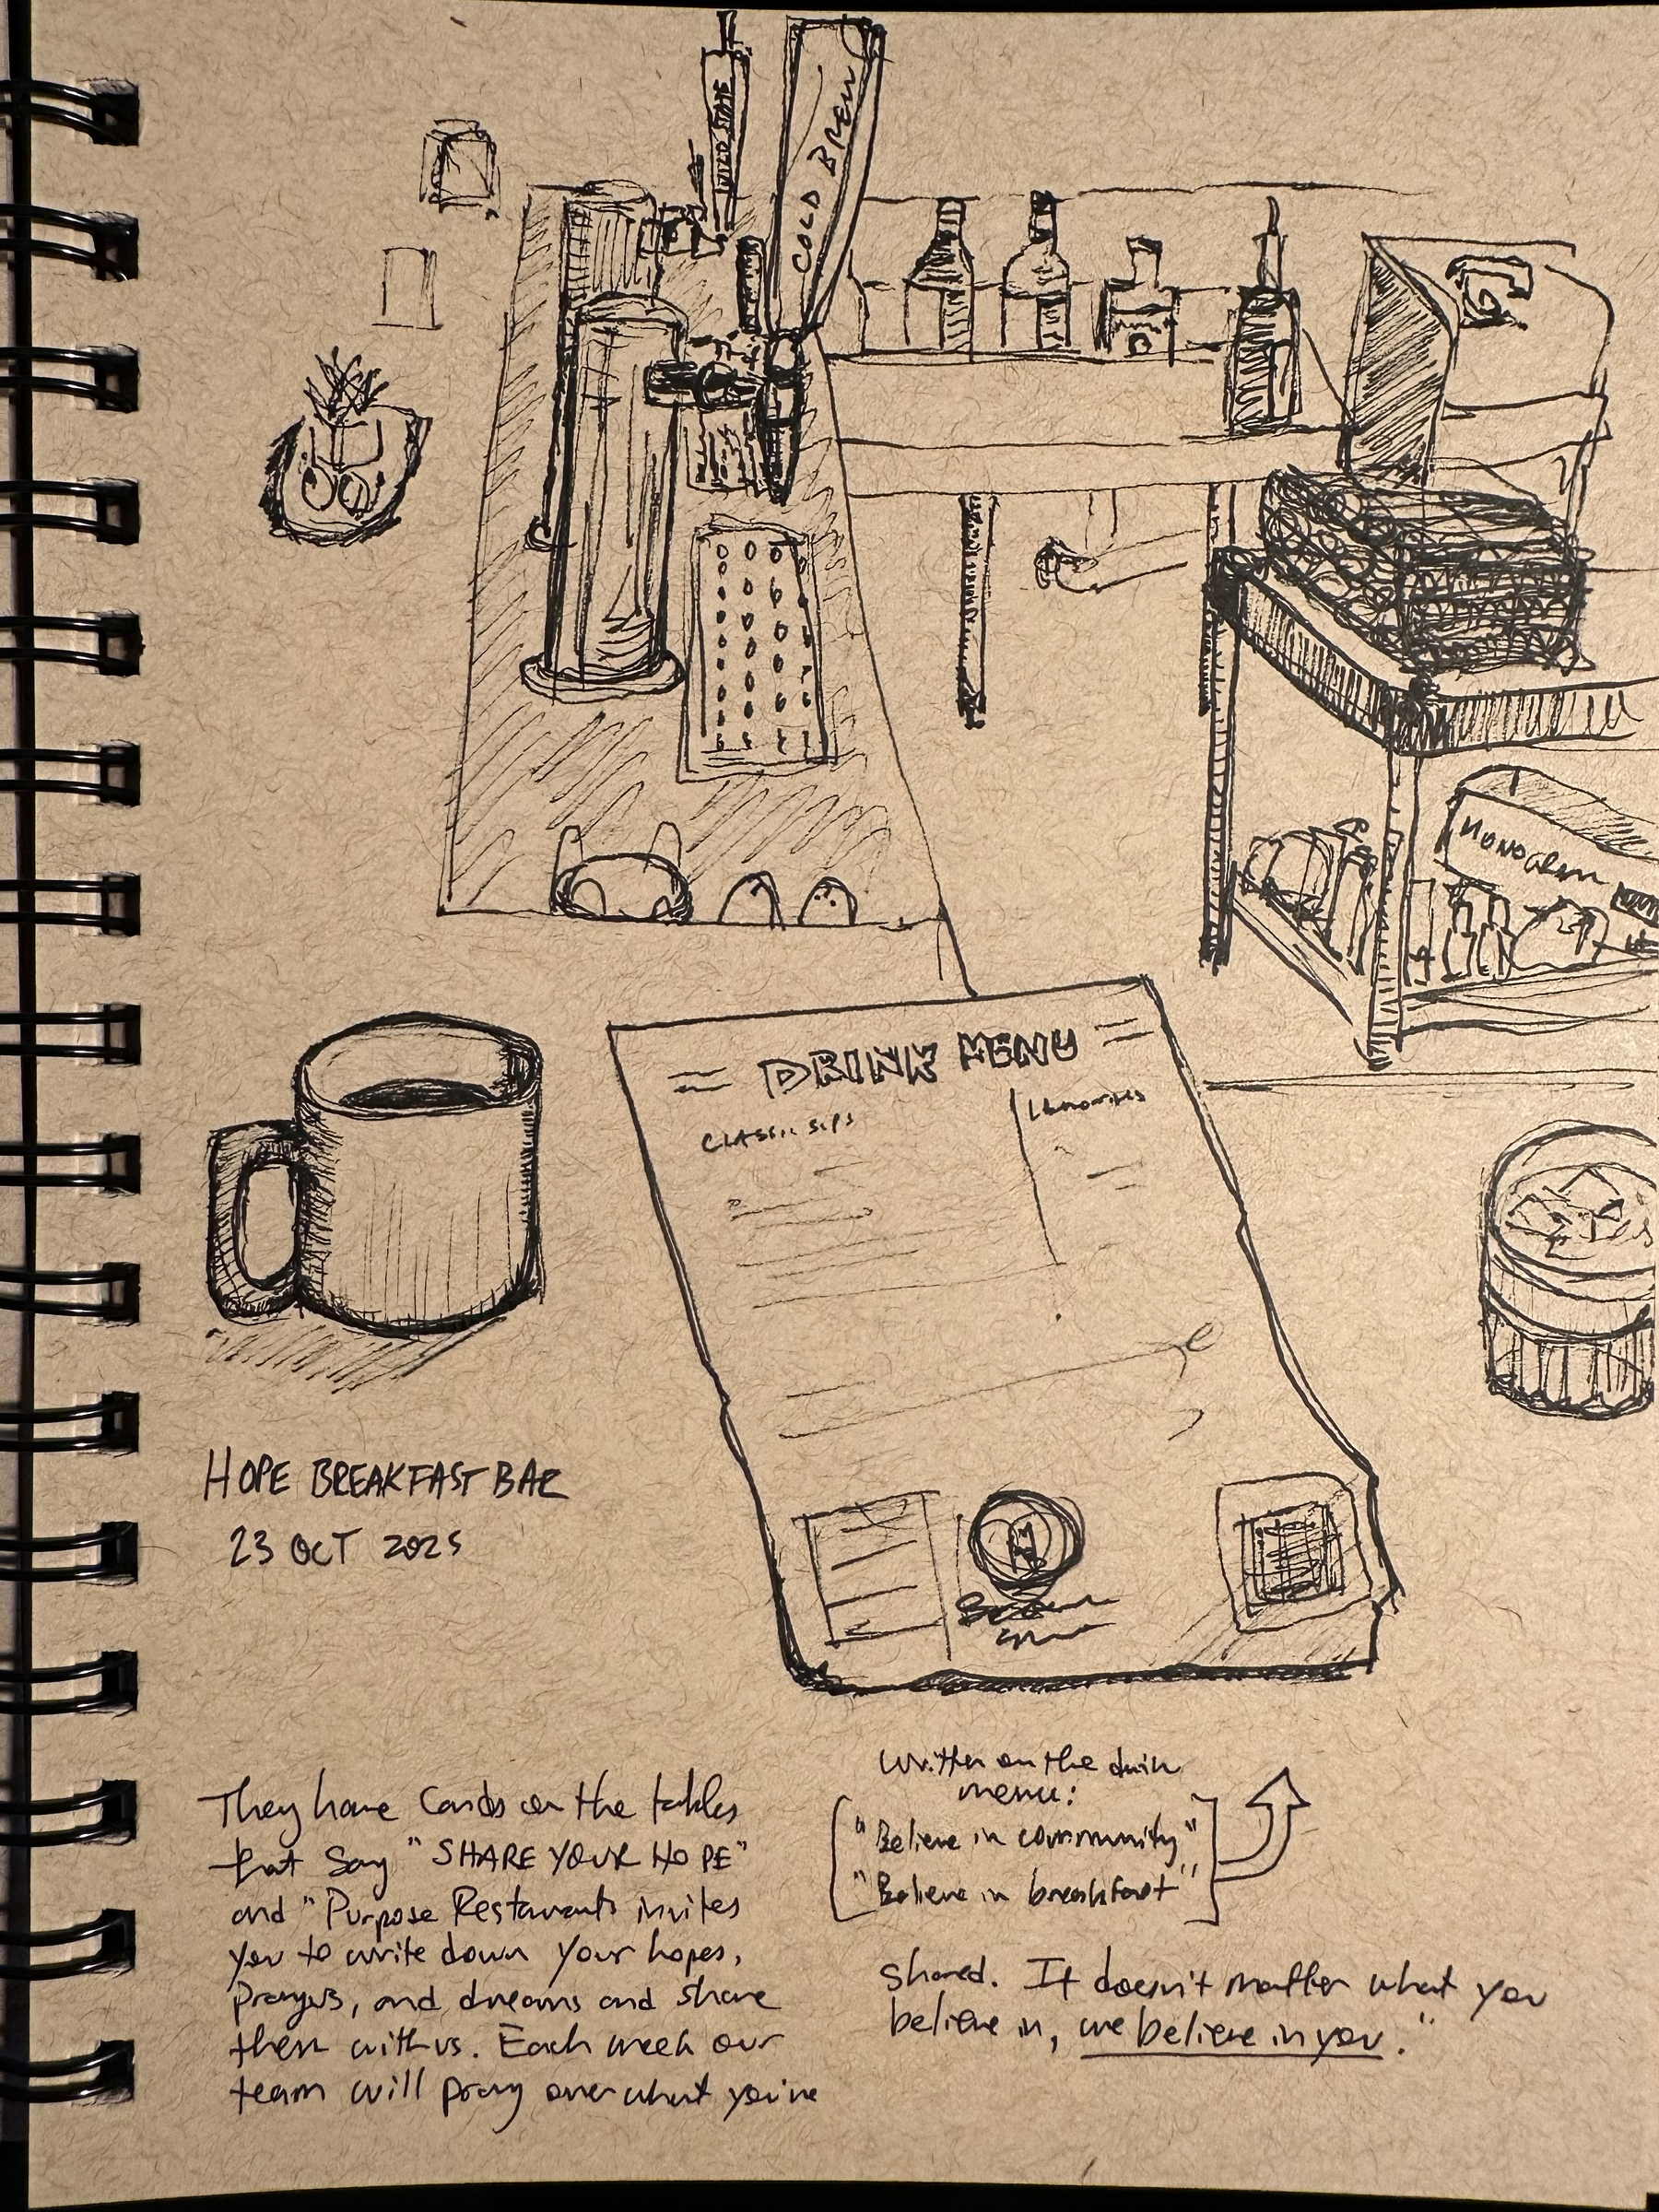 WILD STATE
COLD BREW
MONOGRAM
DRINK MENU
CLASSIC SIPS
HOPE BREAKFAST BAR
23 OCT 2025
They have Cards on the tables
that Say "SHARE YOUR HOPE"
and "Purpose Restaurants invites
you to write down your hopes,
prayers, and dreams and share
them with us. Each week our
team will pray over what you've
written on the drink
menu:
"Believe in community"
"Believe in breakfast"
shared. It doesn't matter what you
believe in, we believe in you."